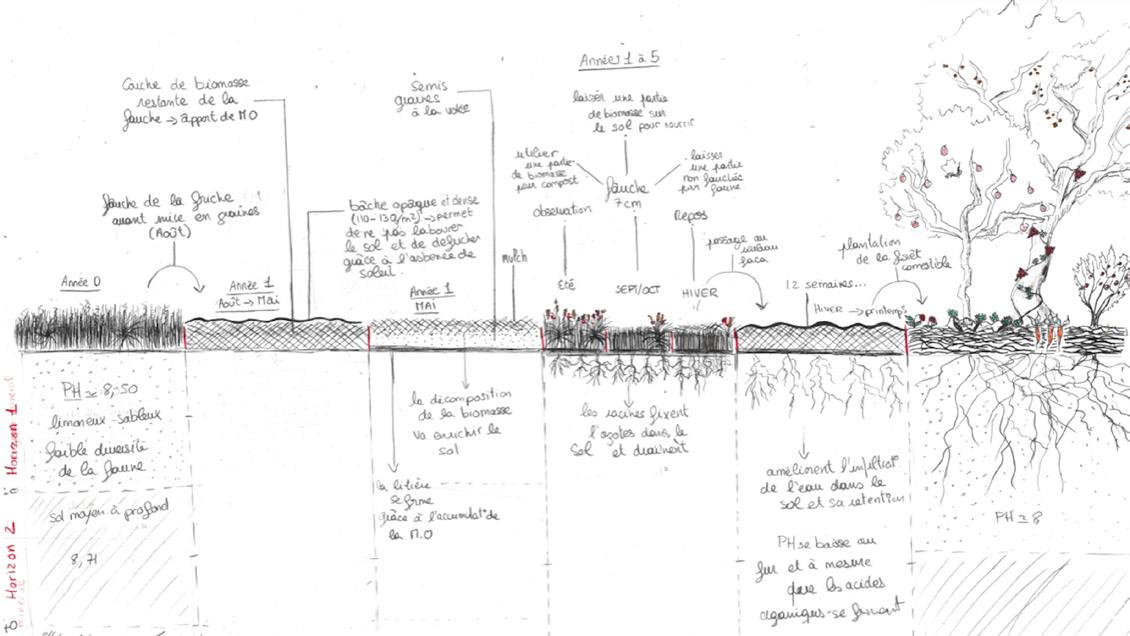 Couche de biomasse
restante de la
fauche → apport de MO
fauche de la friche
avant mise en graines
(Août)
Année 0
Année 1
Août → Mai
bâche opaque et dense
(110-130g/m²) → permet
de ne pas labourer
le sol et de défricher
grâce à l'absence de
soleil.
semis
graines
à la volée
Année 1
MAI
mulch
Années 1 à 5
laisser une partie
de biomasse sur
le sol pour nourrir
utiliser
une partie
de biomasse
pour compost
fauche
7cm
laisser
une partie
non fauchée
pour faune
Observation
Repos
Eté
SEPT/OCT
HIVER
passage au
faca
12 semaines...
HIVER → printemps
plantation
de la forêt
comestible
Horizon 1
Horizon 2
PH ≃ 8,50
limoneux-sableux
faible diversité
de la faune
sol moyen à profond
8,71
la décomposition
de la biomasse
va enrichir le
sol
la litière
se forme
grâce à l'accumulat° de
la M.O
les racines fixent
l'azotes dans le
sol et drainent
améliorent l'infiltrat°
de l'eau dans le
sol et sa rétention
PH se baisse au
fur et à mesure
que les acides
organiques se forment
PH ≃ 8